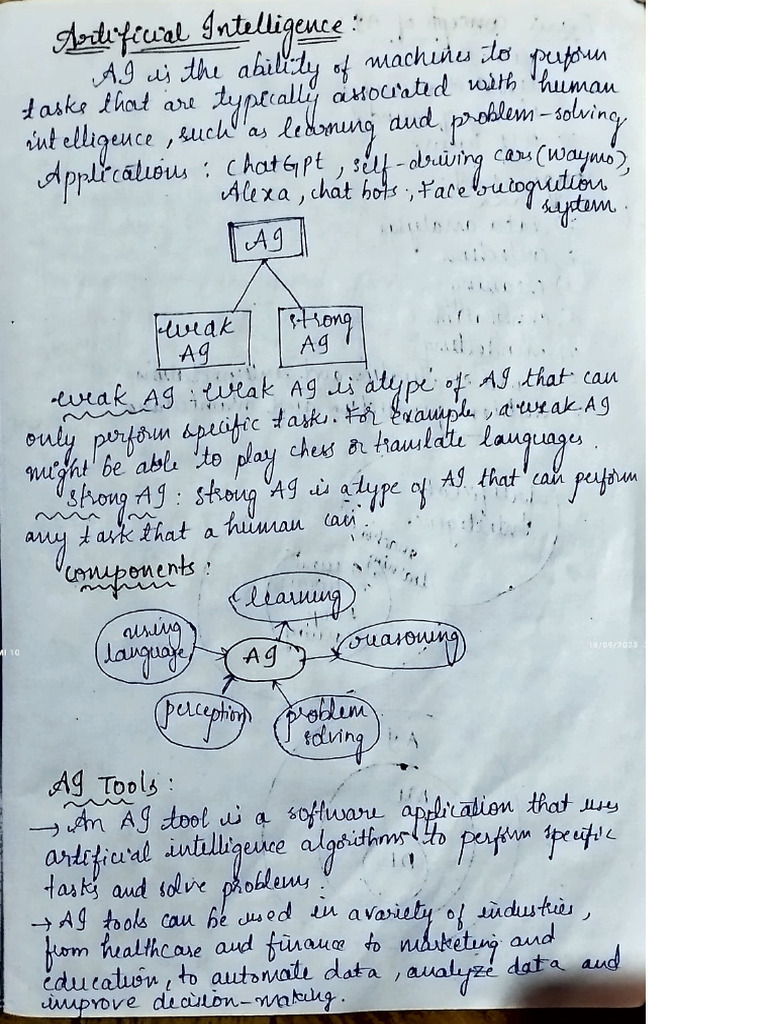 Artificial Intelligence:
AI is the ability of machines to perform
tasks that are typically associated with human
intelligence, such as learning and problem-solving
Applications : ChatGpt, self-driving cars (waymo),
Alexa, chat bots, Face recognition
system.
AI
weak
AI
strong
AI
weak AI : weak AI is a type of AI that can
only perform specific tasks. For example, a weak AI
might be able to play chess or translate languages.
strong AI : strong AI is a type of AI that can perform
any task that a human can.
components :
learning
using
language
AI
reasoning
perception
problem
solving
AI Tools :
→ An AI tool is a software application that uses
artificial intelligence algorithms to perform specific
tasks and solve problems.
→ AI tools can be used in a variety of industries,
from healthcare and finance to marketing and
education, to automate data, analyze data and
improve decision-making.
MI 10
19/09/2023